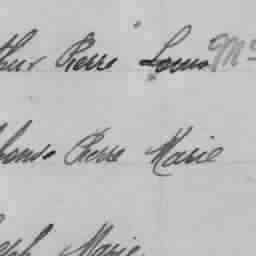 thur Pierre Louis Mc
phonse Pierre Marie
seph Marie